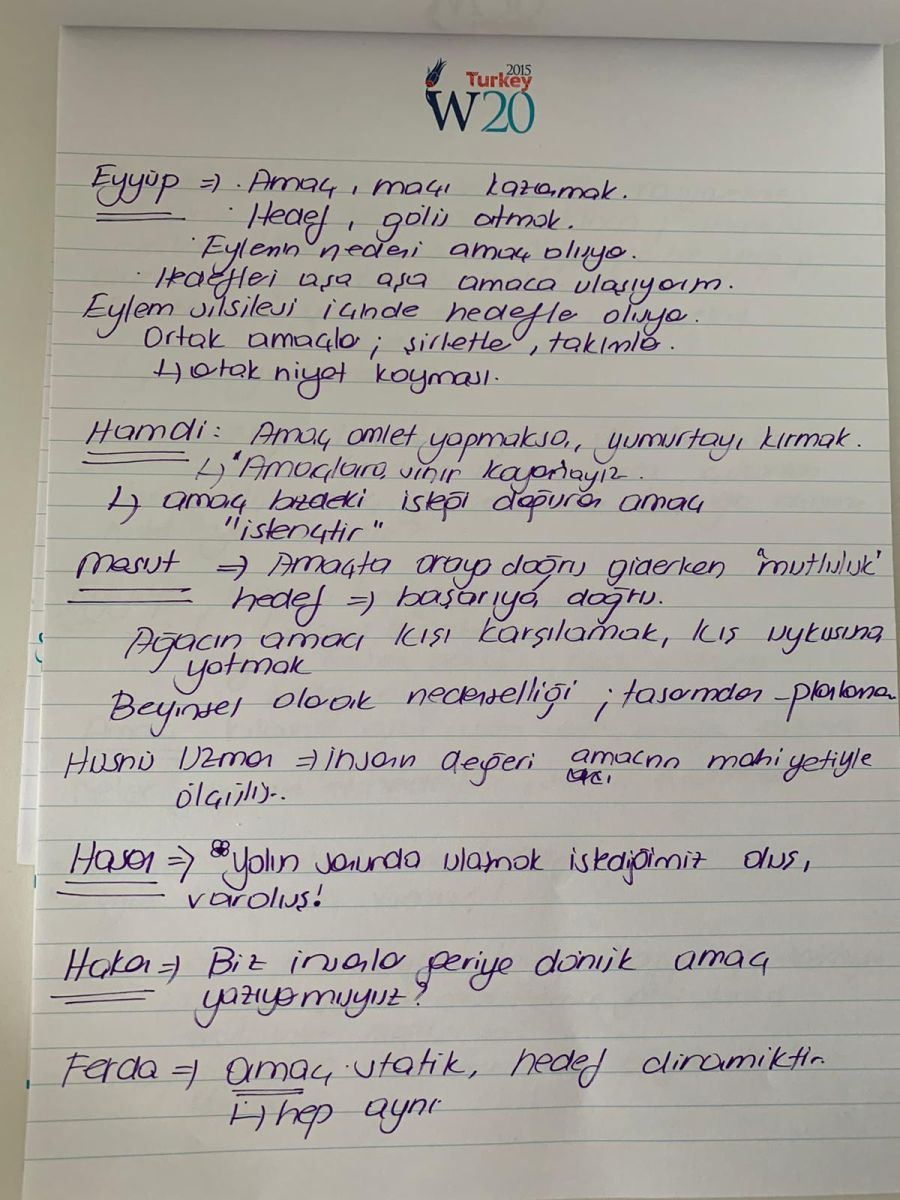 2015
Turkey
W20
Eyyüp => · Amaç, maçı kazanmak.
· Hedef, golü atmak.
· Eylemin nedeni amaç oluyor.
· Hedefleri aşa aşa amaca ulaşıyorum.
Eylem silsilesi içinde hedefler oluyor.
Ortak amaçlar; şirketler, takımlar.
↳ ortak niyet koyması.
Hamdi: Amaç omlet yapmaksa,, yumurtayı kırmak.
↳ "Amaçlara sınır koyamayız.
↳ amaç bizdeki isteği doğuran amaç
"istençtir"
Mesut => Amaçta oraya doğru giderken "mutluluk"
hedef => başarıya doğru.
Ağacın amacı kışı karşılamak, kış uykusuna
yatmak
Beyinsel olarak nedenselliği; tasarımdan - planlama
Hüsnü Uzman => insanın değeri amacının mahiyetiyle
ölçülür..
Hasan => Yolun sonunda ulaşmak istediğimiz oluş,
varoluş!
Hakan => Biz insanlar geriye dönük amaç
yazıyormuyuz?
Ferda => amaç statik, hedef dinamiktir.
↳ hep aynı